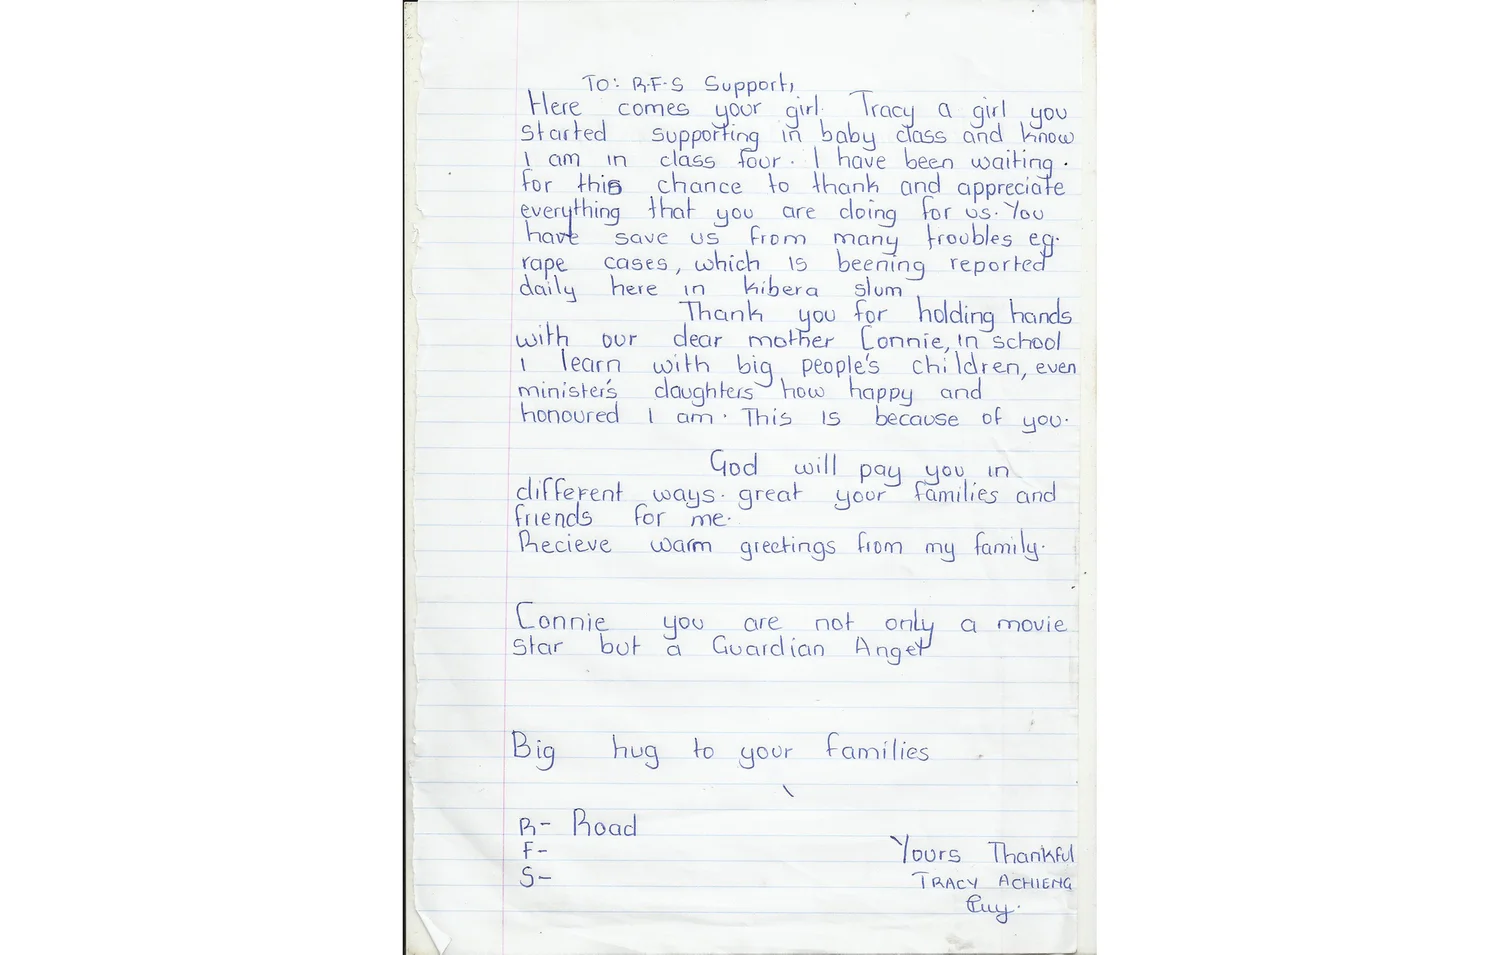 To: R.F.S Support,
Here comes your girl. Tracy a girl you
started supporting in baby class and know
I am in class four. I have been waiting.
for this chance to thank and appreciate
everything that you are doing for us. You
have save us from many troubles eg.
rape cases, which is beening reported
daily here in kibera slum
Thank you for holding hands
with our dear mother Connie, in school
I learn with big people's children, even
minister's daughters how happy and
honoured I am. This is because of you.
God will pay you in
different ways. great your families and
friends for me.
Recieve warm greetings from my family.
Connie you are not only a movie
star but a Guardian Angel
Big hug to your families
R- Road
F-
S-
Yours Thankful
TRACY ACHIENG